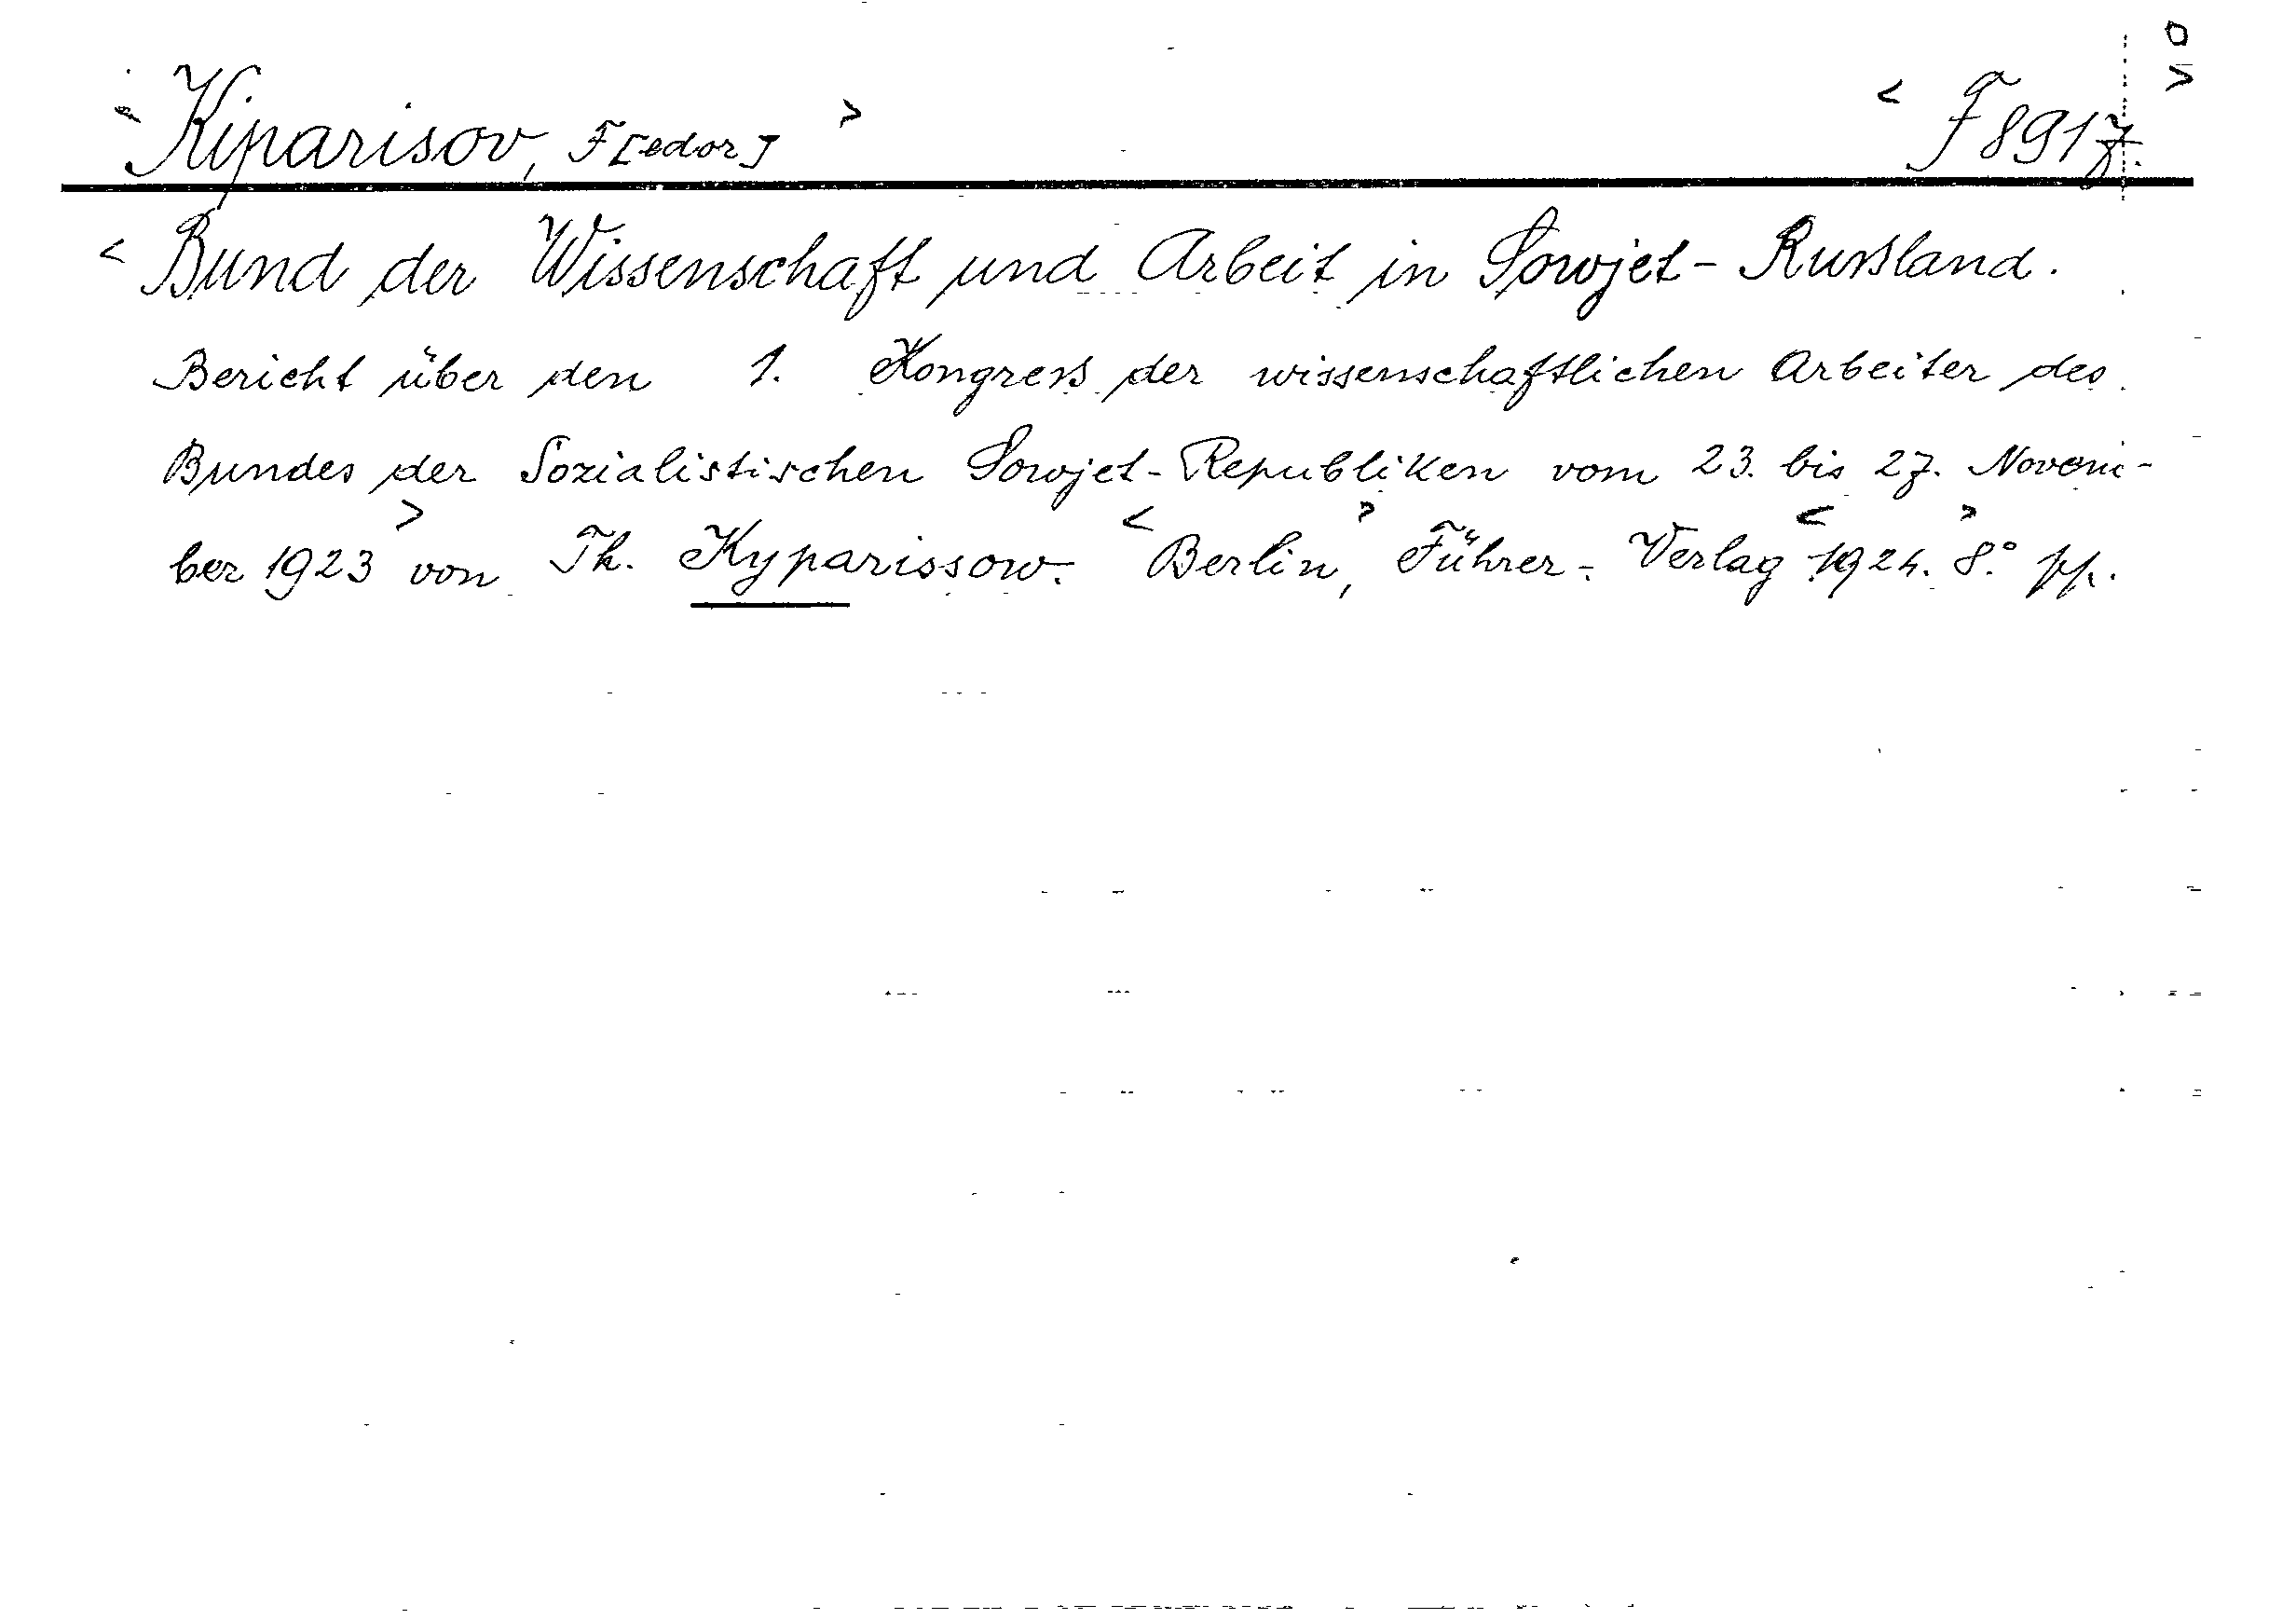 < Kiparisov, F[edor] > < F 8917. > 0
< Bund der Wissenschaft und Arbeit in Sowjet-Rußland.
Bericht über den 1. Kongreß der wissenschaftlichen Arbeiter des
Bundes der Sozialistischen Sowjet-Republiken vom 23. bis 27. Novem-
ber 1923 > von Th. Kyparissow. < Berlin, > Führer-Verlag < 1924. > 8°.